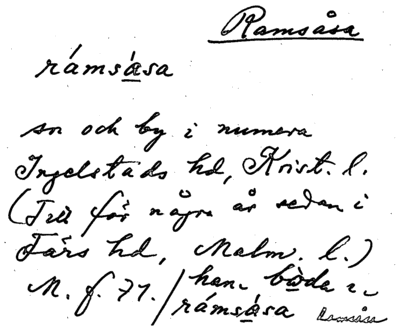 Ramsåsa
rámsåsa
sn och by i numera
Ingelstads hd, Krist. l.
(Till för några år sedan i
Färs hd, Malm. l.)
M. f. 71. / han boda i
rámsåsa Ramsåsa